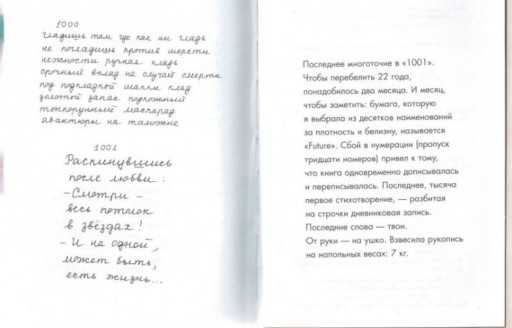 1000
гладишь там где как ни гладь
не погладишь против шерсти
нежности ручная кладь
срочный вклад на случай смерти
под подкладкой шапки клад
золотой запас подкожный
тонкорунный маскарад
авантюры на таможне
1001
Раскинувшись
после любви:
– Смотри –
весь потолок
в звёздах!
– И на одной,
может быть,
есть жизнь...
Последнее многоточие в «1001».
Чтобы перебелить 22 года,
понадобилось два месяца. И месяц,
чтобы заметить: бумага, которую
я выбрала из десятков наименований
за плотность и белизну, называется
«Future». Сбой в нумерации (пропуск
тридцати номеров) привел к тому,
что книга одновременно дописывалась
и переписывалась. Последнее, тысяча
первое стихотворение, — разбитая
на строчки дневниковая запись.
Последние слова — твои.
От руки — на ушко. Взвесила рукопись
на напольных весах: 7 кг.